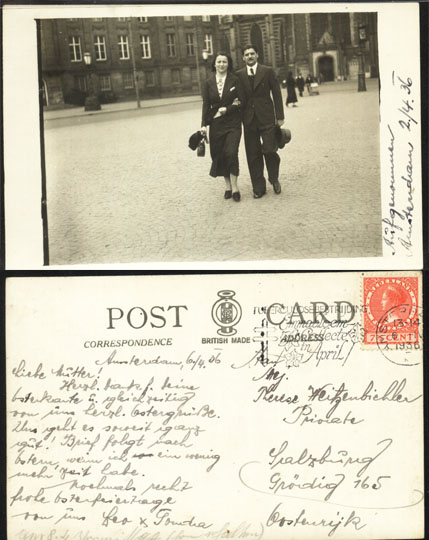 Aufgenommen
Amsterdam 2/4.36
POST CARD
CORRESPONDENCE
BRITISH MADE
ADDRESS
TUBERCULOSEBESTRIJDING
Emmabloem
Collecte
in April
NEDERLAND
7½ CENT
1936
Amsterdam, 6/4.36
Liebe Mutter!
Herzl. Dank f. Deine
Osterkarte u. gleichzeitig
von uns herzl. Ostergrüße.
Uns geht es soweit ganz
gut! Brief folgt nach
Ostern, wenn ich ein wenig
mehr Zeit habe.
Nochmals recht
frohe Osterfeiertage
von uns Leo &
Mej.
Therese
Privata
Salzburg
Grödig 165
Oostenrijk